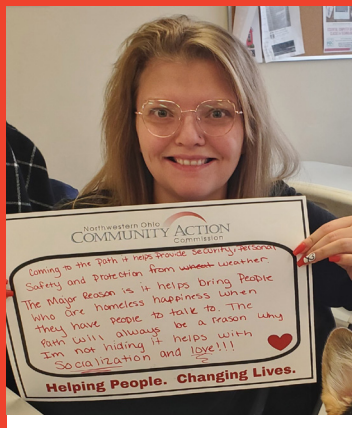 Northwestern Ohio
COMMUNITY ACTION
Commission
Coming to the Path it helps Provide security, Personal
Safety and Protection from wheat weather.
The Major Reason is it helps bring People
who are homeless happiness when
they have people to talk to. The
Path will always be a reason why
Im not hiding it helps with
Socialization and love!!!
Helping People. Changing Lives.